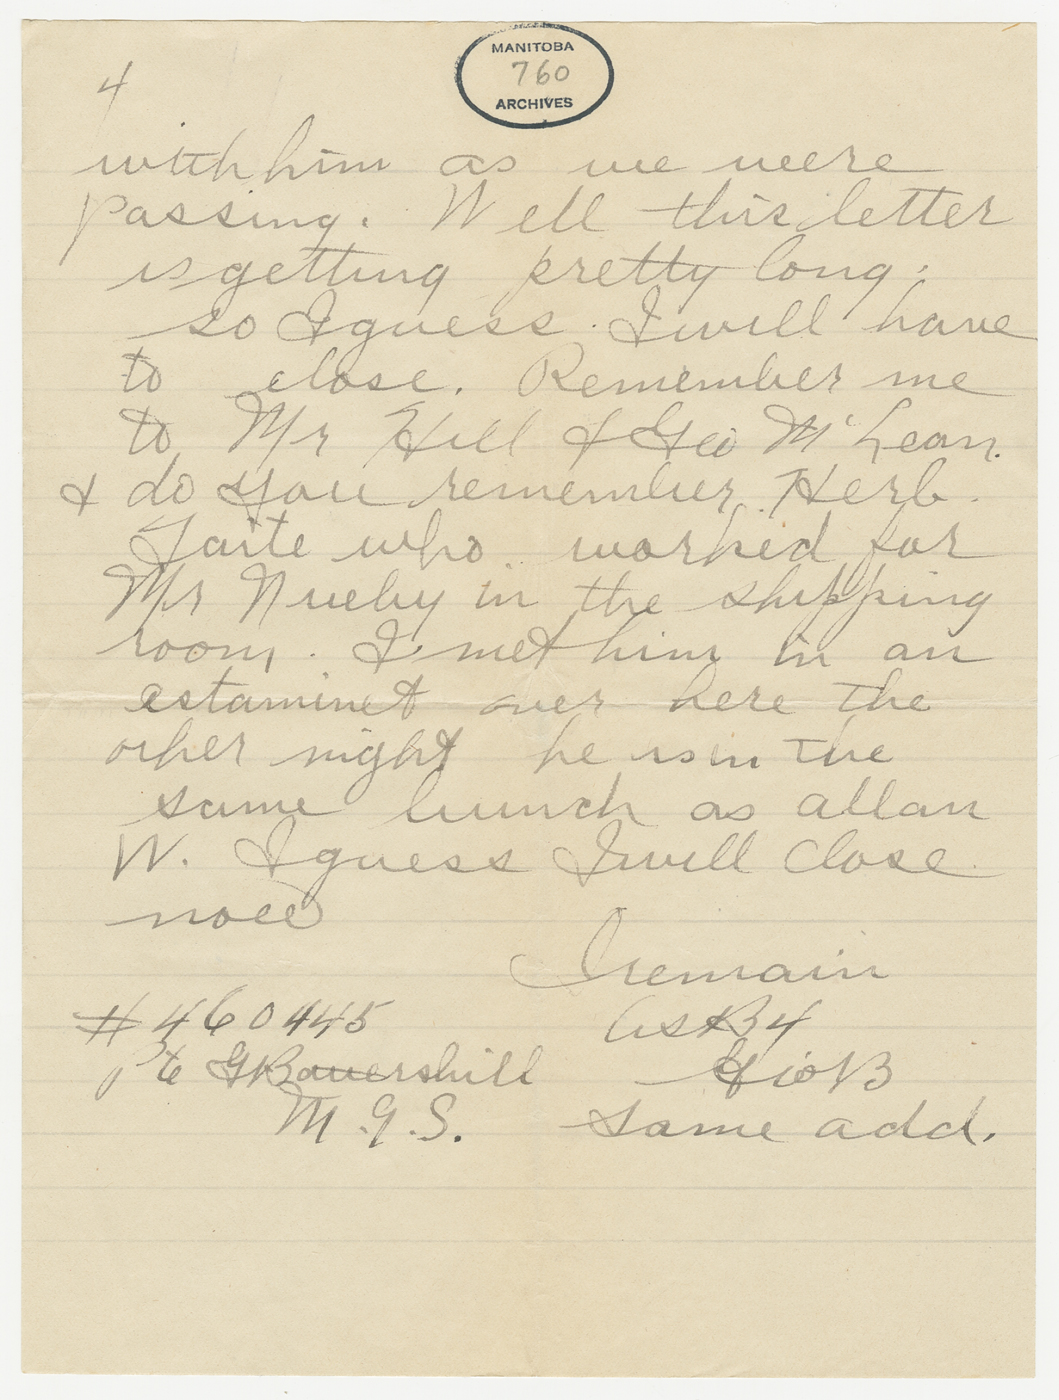 MANITOBA
760
ARCHIVES
4
with him as we were
passing. Well this letter
is getting pretty long.
so I guess I will have
to close. Remember me
to Mr Hill & Geo McLean.
& do you remember Herb.
Taite who worked for
Mr Nueby in the shipping
room. I met him in an
estaminet over here the
other night he is in the
same bunch as Allan
W. I guess I will close
now
I remain
As B4
Geo B
same add.
#460445
Pte G Battershill
M.G.S.